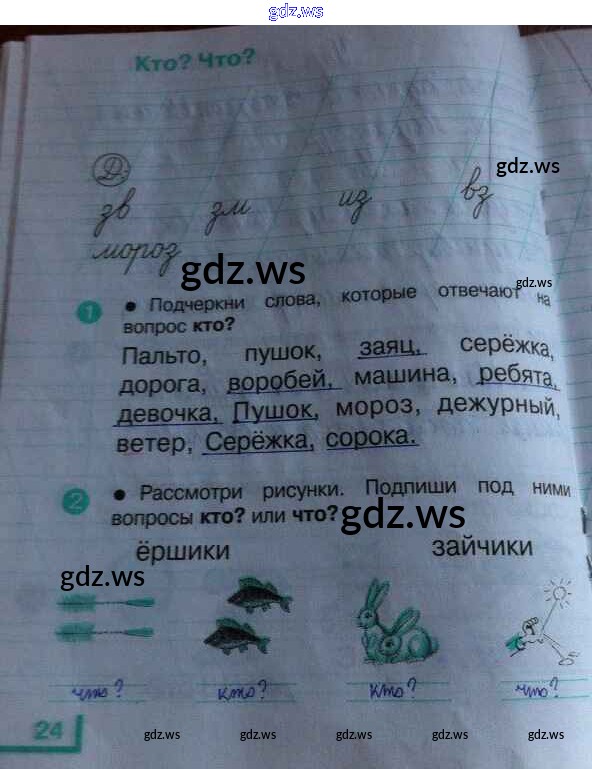 gdz.ws
Кто? Что?
Д.
gdz.ws
зв зм из вз
мороз
gdz.ws
gdz.ws
1 • Подчеркни слова, которые отвечают на
вопрос кто?
Пальто, пушок, заяц, серёжка,
дорога, воробей, машина, ребята,
девочка, Пушок, мороз, дежурный,
ветер, Серёжка, сорока.
2 • Рассмотри рисунки. Подпиши под ними
вопросы кто? или что?
gdz.ws
ёршики зайчики
gdz.ws
что? кто? кто? что?
24
gdz.ws gdz.ws gdz.ws gdz.ws gdz.ws